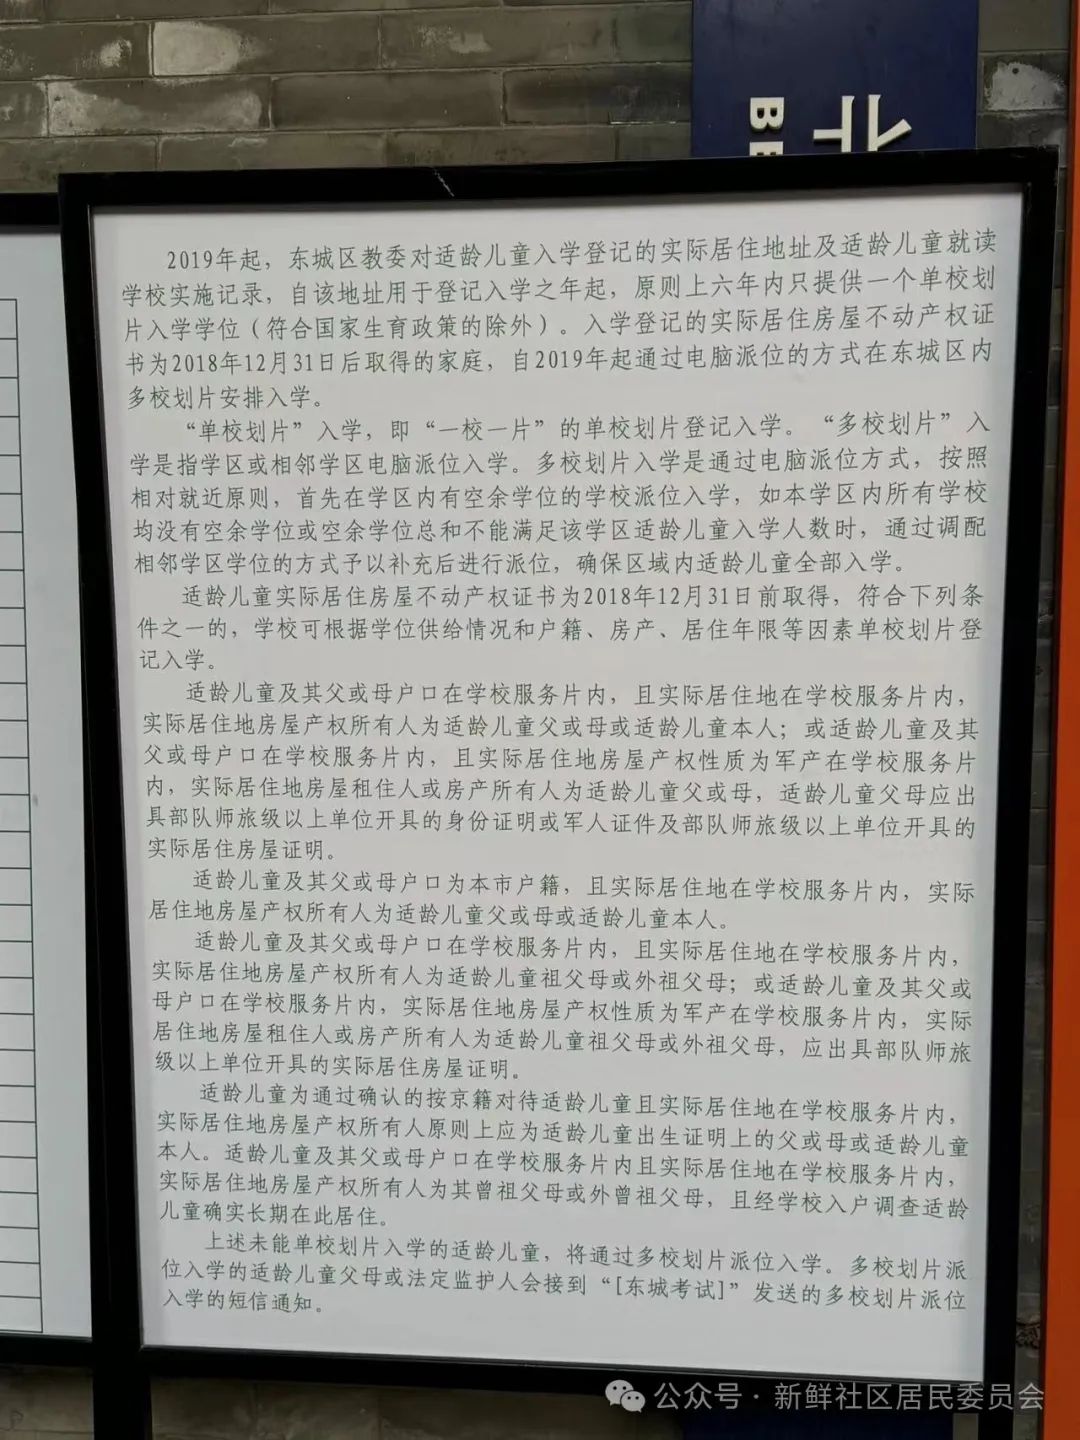 北
BE
2019年起，东城区教委对适龄儿童入学登记的实际居住地址及适龄儿童就读
学校实施记录，自该地址用于登记入学之年起，原则上六年内只提供一个单校划
片入学学位（符合国家生育政策的除外）。入学登记的实际居住房屋不动产权证
书为2018年12月31日后取得的家庭，自2019年起通过电脑派位的方式在东城区内
多校划片安排入学。
“单校划片”入学，即“一校一片”的单校划片登记入学。“多校划片”入
学是指学区或相邻学区电脑派位入学。多校划片入学是通过电脑派位方式，按照
相对就近原则，首先在学区内有空余学位的学校派位入学，如本学区内所有学校
均没有空余学位或空余学位总和不能满足该学区适龄儿童入学人数时，通过调配
相邻学区学位的方式予以补充后进行派位，确保区域内适龄儿童全部入学。
适龄儿童实际居住房屋不动产权证书为2018年12月31日前取得，符合下列条
件之一的，学校可根据学位供给情况和户籍、房产、居住年限等因素单校划片登
记入学。
适龄儿童及其父或母户口在学校服务片内，且实际居住地在学校服务片内，
实际居住地房屋产权所有人为适龄儿童父或母或适龄儿童本人；或适龄儿童及其
父或母户口在学校服务片内，且实际居住地房屋产权性质为军产在学校服务片
内，实际居住地房屋租住人或房产所有人为适龄儿童父或母，适龄儿童父母应出
具部队师旅级以上单位开具的身份证明或军人证件及部队师旅级以上单位开具的
实际居住房屋证明。
适龄儿童及其父或母户口为本市户籍，且实际居住地在学校服务片内，实际
居住地房屋产权所有人为适龄儿童父或母或适龄儿童本人。
适龄儿童及其父或母户口在学校服务片内，且实际居住地在学校服务片内，
实际居住地房屋产权所有人为适龄儿童祖父母或外祖父母；或适龄儿童及其父或
母户口在学校服务片内，实际居住地房屋产权性质为军产在学校服务片内，实际
居住地房屋租住人或房产所有人为适龄儿童祖父母或外祖父母，应出具部队师旅
级以上单位开具的实际居住房屋证明。
适龄儿童为通过确认的按京籍对待适龄儿童且实际居住地在学校服务片内，
实际居住地房屋产权所有人原则上应为适龄儿童出生证明上的父或母或适龄儿童
本人。适龄儿童及其父或母户口在学校服务片内且实际居住地在学校服务片内，
实际居住地房屋产权所有人为其曾祖父母或外曾祖父母，且经学校入户调查适龄
儿童确实长期在此居住。
上述未能单校划片入学的适龄儿童，将通过多校划片派位入学。多校划片派
位入学的适龄儿童父母或法定监护人会接到“[东城考试]”发送的多校划片派位
入学的短信通知。
公众号·新鲜社区居民委员会